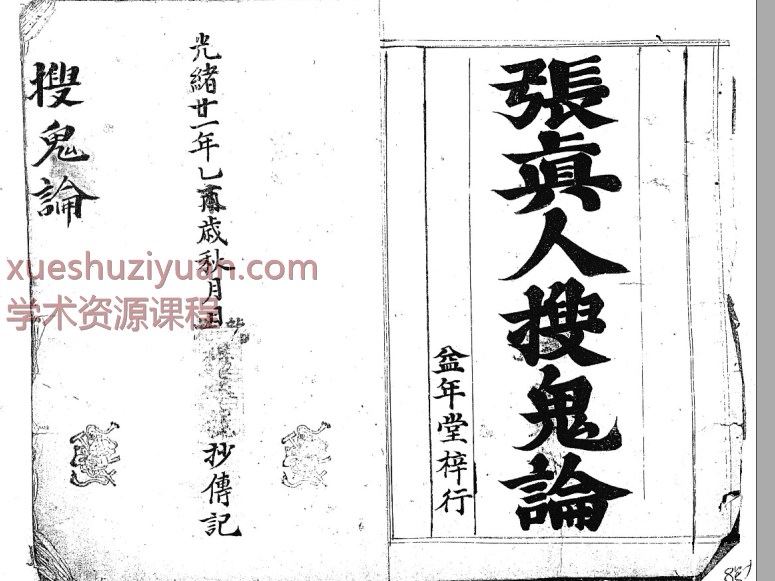 張眞人搜鬼論
益年堂梓行
光緒廿一年乙歲秋月 抄傳記
搜鬼論
xueshuziyuan.com
学术资源课程